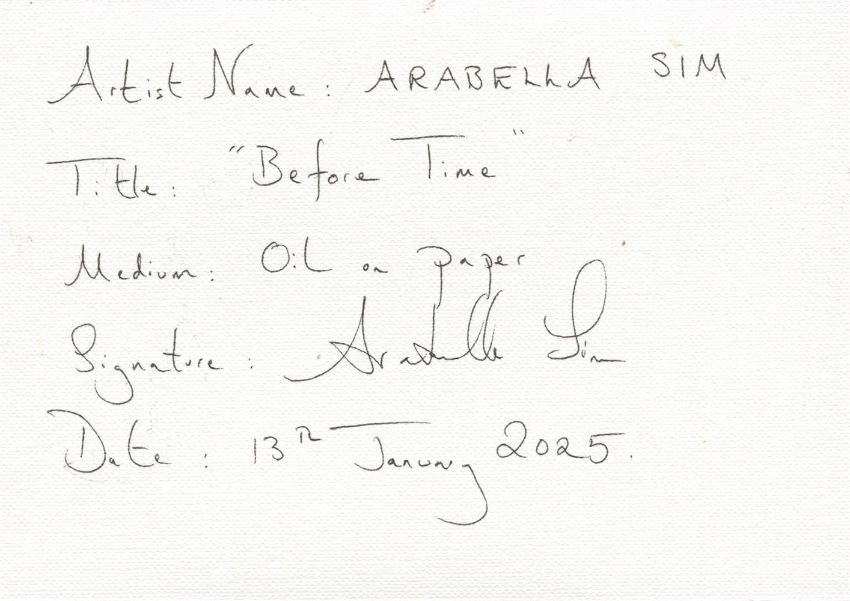 Artist Name: ARABELLA SIM
Title: "Before Time"
Medium: Oil on paper
Signature: Arabella Sim
Date: 13th January 2025.